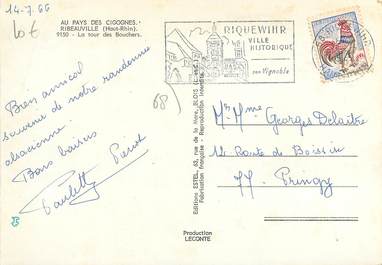 14.7.66
10€
AU PAYS DES CIGOGNES.-
RIBEAUVILLÉ (Haut-Rhin).
9150 - La tour des Bouchers.
RIQUEWIHR
VILLE
HISTORIQUE
son Vignoble
Bien amical
souvenir de notre randonnée
alsacienne.
Bons baisers
Paulette Pierrot
68)
Editions ESTEL, 43, rue de la Mone, BLOIS
Fabrication française - Reproduction interdite.
Mr Mme Georges Delaitre
12 Route de Boissise
77 Pringy
Production
LECONTE